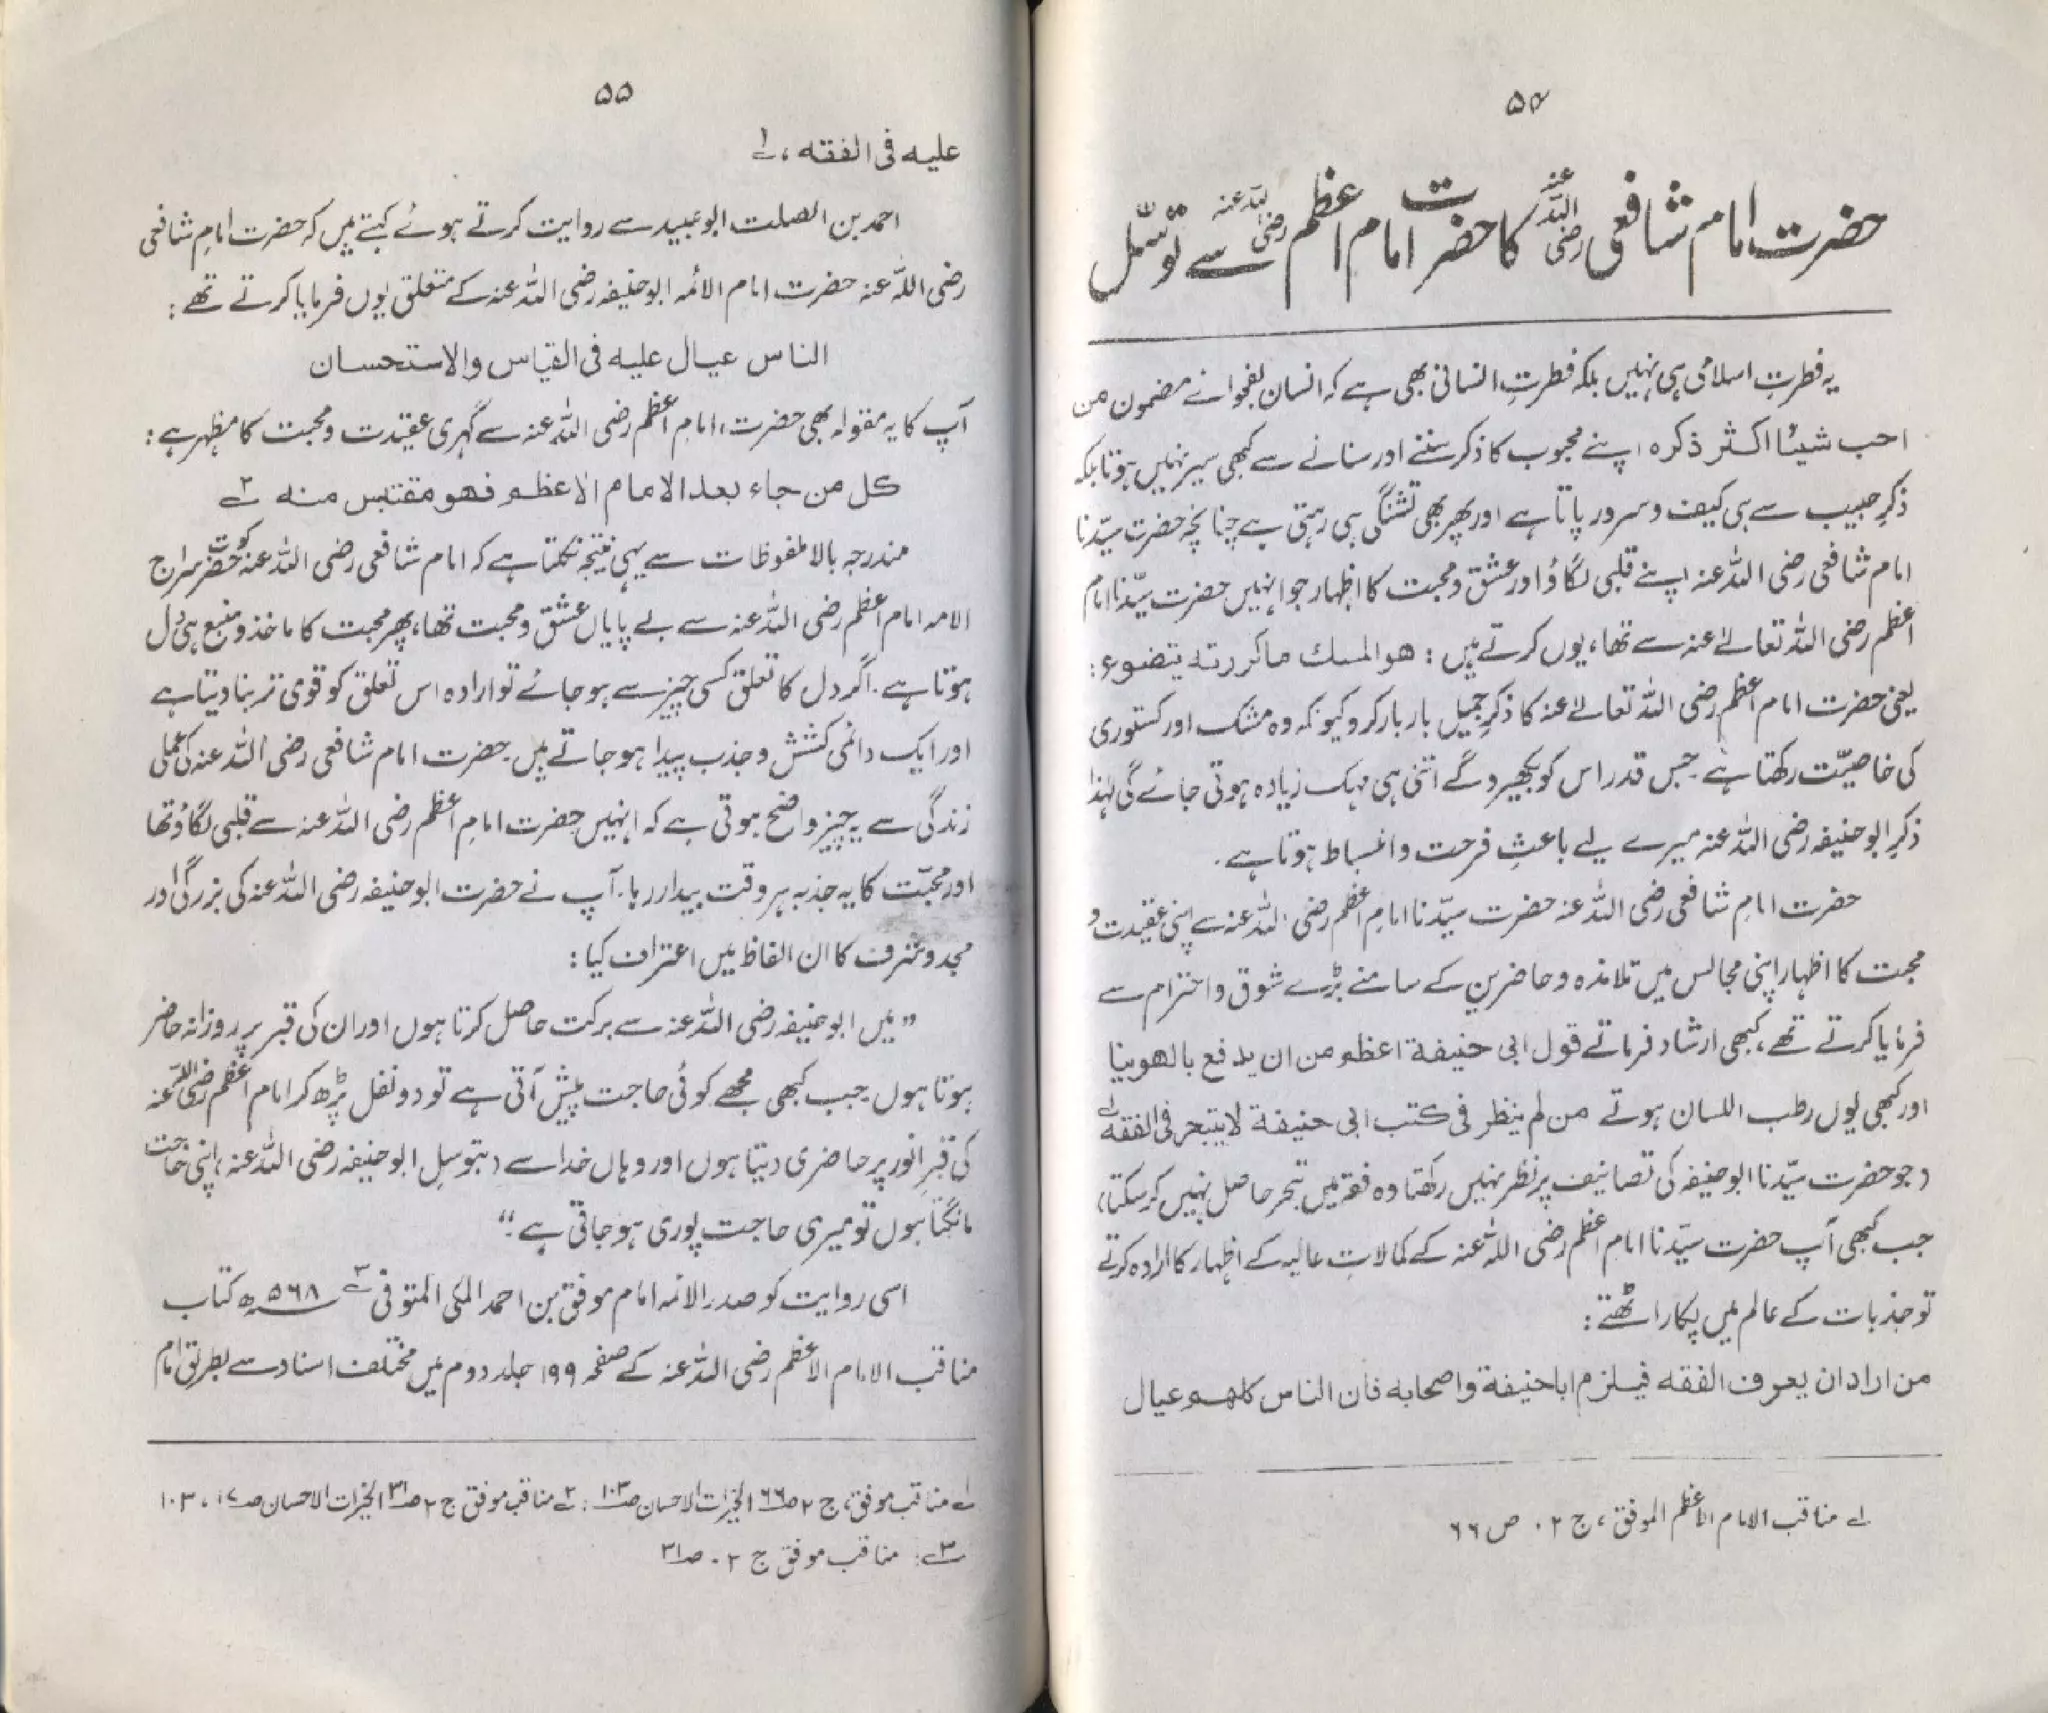 ۵۴
حضرت امام شافعی رضی اللہ عنہ کا حضرت امام اعظم رضی اللہ عنہ سے توسّل
یہ فطرتِ اسلامی ہی نہیں بلکہ فطرتِ انسانی بھی ہے کہ انسان بفحوائے مضمون من
احب شیئا اکثر ذکرہ اپنے محبوب کا ذکر سننے اور سنانے سے کبھی سیر نہیں ہوتا بلکہ
ذکرِ حبیب سے ہی کیف و سرور پاتا ہے اور پھر بھی تشنگی ہی رہتی ہے چنانچہ حضرت سیّدنا
امام شافعی رضی اللہ عنہ اپنے قلبی لگاؤ اور عشق و محبت کا اظہار جو انہیں حضرت سیّدنا امام
اعظم رضی اللہ تعالےٰ عنہ سے تھا، یوں کرتے ہیں : ھو المسک ما کررتہ یتضوع :
یعنی حضرت امام اعظم رضی اللہ تعالےٰ عنہ کا ذکرِ جمیل بار بار کرو کیونکہ وہ مشک اور کستوری
کی خاصیّت رکھتا ہے۔ جس قدر اس کو بکھیرو گے اتنی ہی مہک زیادہ ہوتی جائے گی لہٰذا
ذکرِ ابو حنیفہ رضی اللہ عنہ میرے لیے باعثِ فرحت و انبساط ہوتا ہے۔
حضرت امام شافعی رضی اللہ عنہ حضرت سیّدنا امام اعظم رضی اللہ عنہ سے اپنی عقیدت و
محبت کا اظہار اپنی مجالس میں تلامذہ و حاضرین کے سامنے بڑے شوق و احترام سے
فرمایا کرتے تھے، کبھی ارشاد فرماتے قول ابی حنیفۃ اعظم من ان یدفع بالھوینا
اور کبھی یوں رطب اللسان ہوتے من لم ینظر فی کتب ابی حنیفۃ لا یتبحر فی الفقہ ۱ے
(جو حضرت سیّدنا ابو حنیفہ کی تصانیف پر نظر نہیں رکھتا وہ فقہ میں تبحر حاصل نہیں کر سکتا)
جب کبھی آپ حضرت سیّدنا امام اعظم رضی اللہ عنہ کے کمالاتِ عالیہ کے اظہار کا ارادہ کرتے
تو جذبات کے عالم میں پکار اٹھتے :
من اراد ان یعرف الفقہ فیلزم ابا حنیفۃ و اصحابہ فان الناس کلھم عیال
۱ے مناقب الامام الاعظم الموفق، ج ۲۔ ص ۶۶
۵۵
علیہ فی الفقہ، ۱ے
احمد بن الصلت ابو عبید سے روایت کرتے ہوئے کہتے ہیں کہ حضرت امامِ شافعی
رضی اللہ عنہ حضرت امام الائمہ ابو حنیفہ رضی اللہ عنہ کے متعلق یوں فرمایا کرتے تھے :
الناس عیال علیہ فی القیاس والاستحسان
آپ کا یہ مقولہ بھی حضرت امامِ اعظم رضی اللہ عنہ سے گہری عقیدت و محبت کا مظہر ہے :
کل من جاء بعد الامام الاعظم فھو مقتبس منہ ۲ے
مندرجہ بالا ملفوظات سے یہی نتیجہ نکلتا ہے کہ امام شافعی رضی اللہ عنہ کو حضرت سراج
الامہ امام اعظم رضی اللہ عنہ سے بے پایاں عشق و محبت تھا، پھر محبت کا ماخذ و منبع ہی دل
ہوتا ہے۔ اگر دل کا تعلق کسی چیز سے ہو جائے تو ارادہ اس تعلق کو قوی تر بنا دیتا ہے
اور ایک دائمی کشش و جذب پیدا ہو جاتے ہیں۔ حضرت امام شافعی رضی اللہ عنہ کی عملی
زندگی سے یہ چیز واضح ہوتی ہے کہ انہیں حضرت امامِ اعظم رضی اللہ عنہ سے قلبی لگاؤ تھا
اور محبّت کا یہ جذبہ ہر وقت بیدار رہا۔ آپ نے حضرت ابو حنیفہ رضی اللہ عنہ کی بزرگی اور
مجد و شرف کا ان الفاظ میں اعتراف کیا :
”میں ابو حنیفہ رضی اللہ عنہ سے برکت حاصل کرتا ہوں اور ان کی قبر پر روزانہ حاضر
ہوتا ہوں۔ جب کبھی مجھے کوئی حاجت پیش آتی ہے تو دو نفل پڑھ کر امام اعظم رضی اللہ عنہ
کی قبرِ انور پر حاضری دیتا ہوں اور وہاں خدا سے (بتوسلِ ابو حنیفہ رضی اللہ عنہ) اپنی حاجت
مانگتا ہوں تو میری حاجت پوری ہو جاتی ہے۔“
اسی روایت کو صدر الائمہ امام موفق بن احمد المکی المتوفی ۳ے ۵۶۸ھ کتاب
مناقب الامام الاعظم رضی اللہ عنہ کے صفحہ ۱۹۹ جلد دوم میں مختلف اسناد سے بطریق امام
۱ے مناقب موفق، ج ۲ ص ۶۶ الخیرات الاحسان ص ۱۰۳ : ۲ے مناقب موفق ج ۲ ص ۳۱ الخیرات الاحسان ص ۱۷، ۱۰۳
۳ے : مناقب موفق ج ۲۔ ص ۳۱